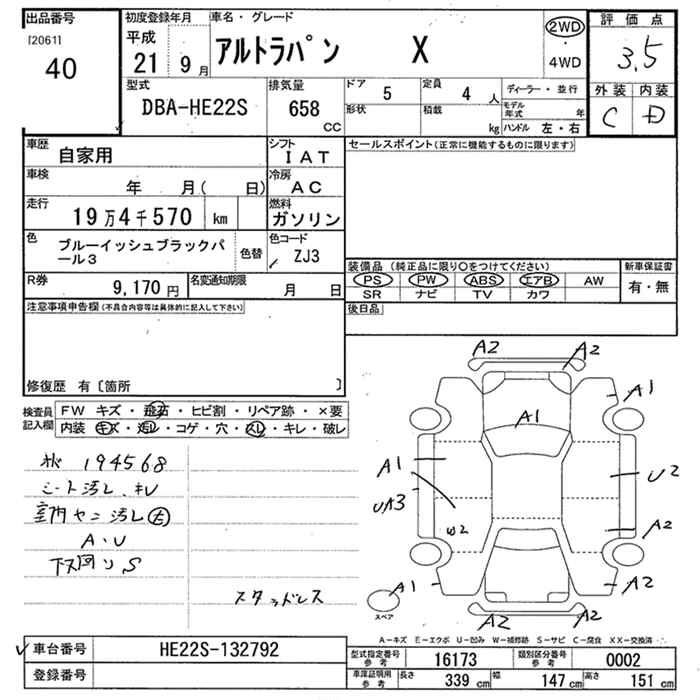 出品番号
[2061]
40
初度登録年月
平成
21 9月
車名・グレード
アルトラパン X
2WD
・
4WD
評価点
3.5
外装 内装
C D
型式
DBA-HE22S
排気量
658
CC
ドア 5
定員 4 人
形状
積載 kg
ディーラー・並行
モデル年式 年
ハンドル 左・右
車歴
自家用
シフト
IAT
車検
年 月( 日)
冷房
AC
走行
19万4千570 km
燃料
ガソリン
色
ブルーイッシュブラックパール3
色替
色コード
ZJ3
R券
9,170 円
名変通知期限
月 日
セールスポイント(正常に機能するものに限ります)
装備品(純正品に限り○をつけてください)
PS PW ABS エアB AW
SR ナビ TV カワ
新車保証書
有・無
後日品
注意事項申告欄(不具合内容等は具体的に記入して下さい)
修復歴 有〔箇所 〕
検査員記入欄
FW キズ・飛石・ヒビ割・リペア跡・×要
内装 キズ・汚レ・コゲ・穴・スレ・キレ・破レ
194568
シート汚レ・キレ
室内ヤニ汚レ
A・U
下廻リS
スタッドレス
A2 A2
A1
A1
A1
U2
UA3
W2
A2
A1
A2
A2 A2
スペア
A-キズ E-エクボ U-凹み W-補修跡 S-サビ C-腐食 XX-交換済
車台番号
HE22S-132792
登録番号
型式指定番号 参考
16173
類別区分番号 参考
0002
車庫証明用 参考
長さ 339 cm
幅 147 cm
高さ 151 cm